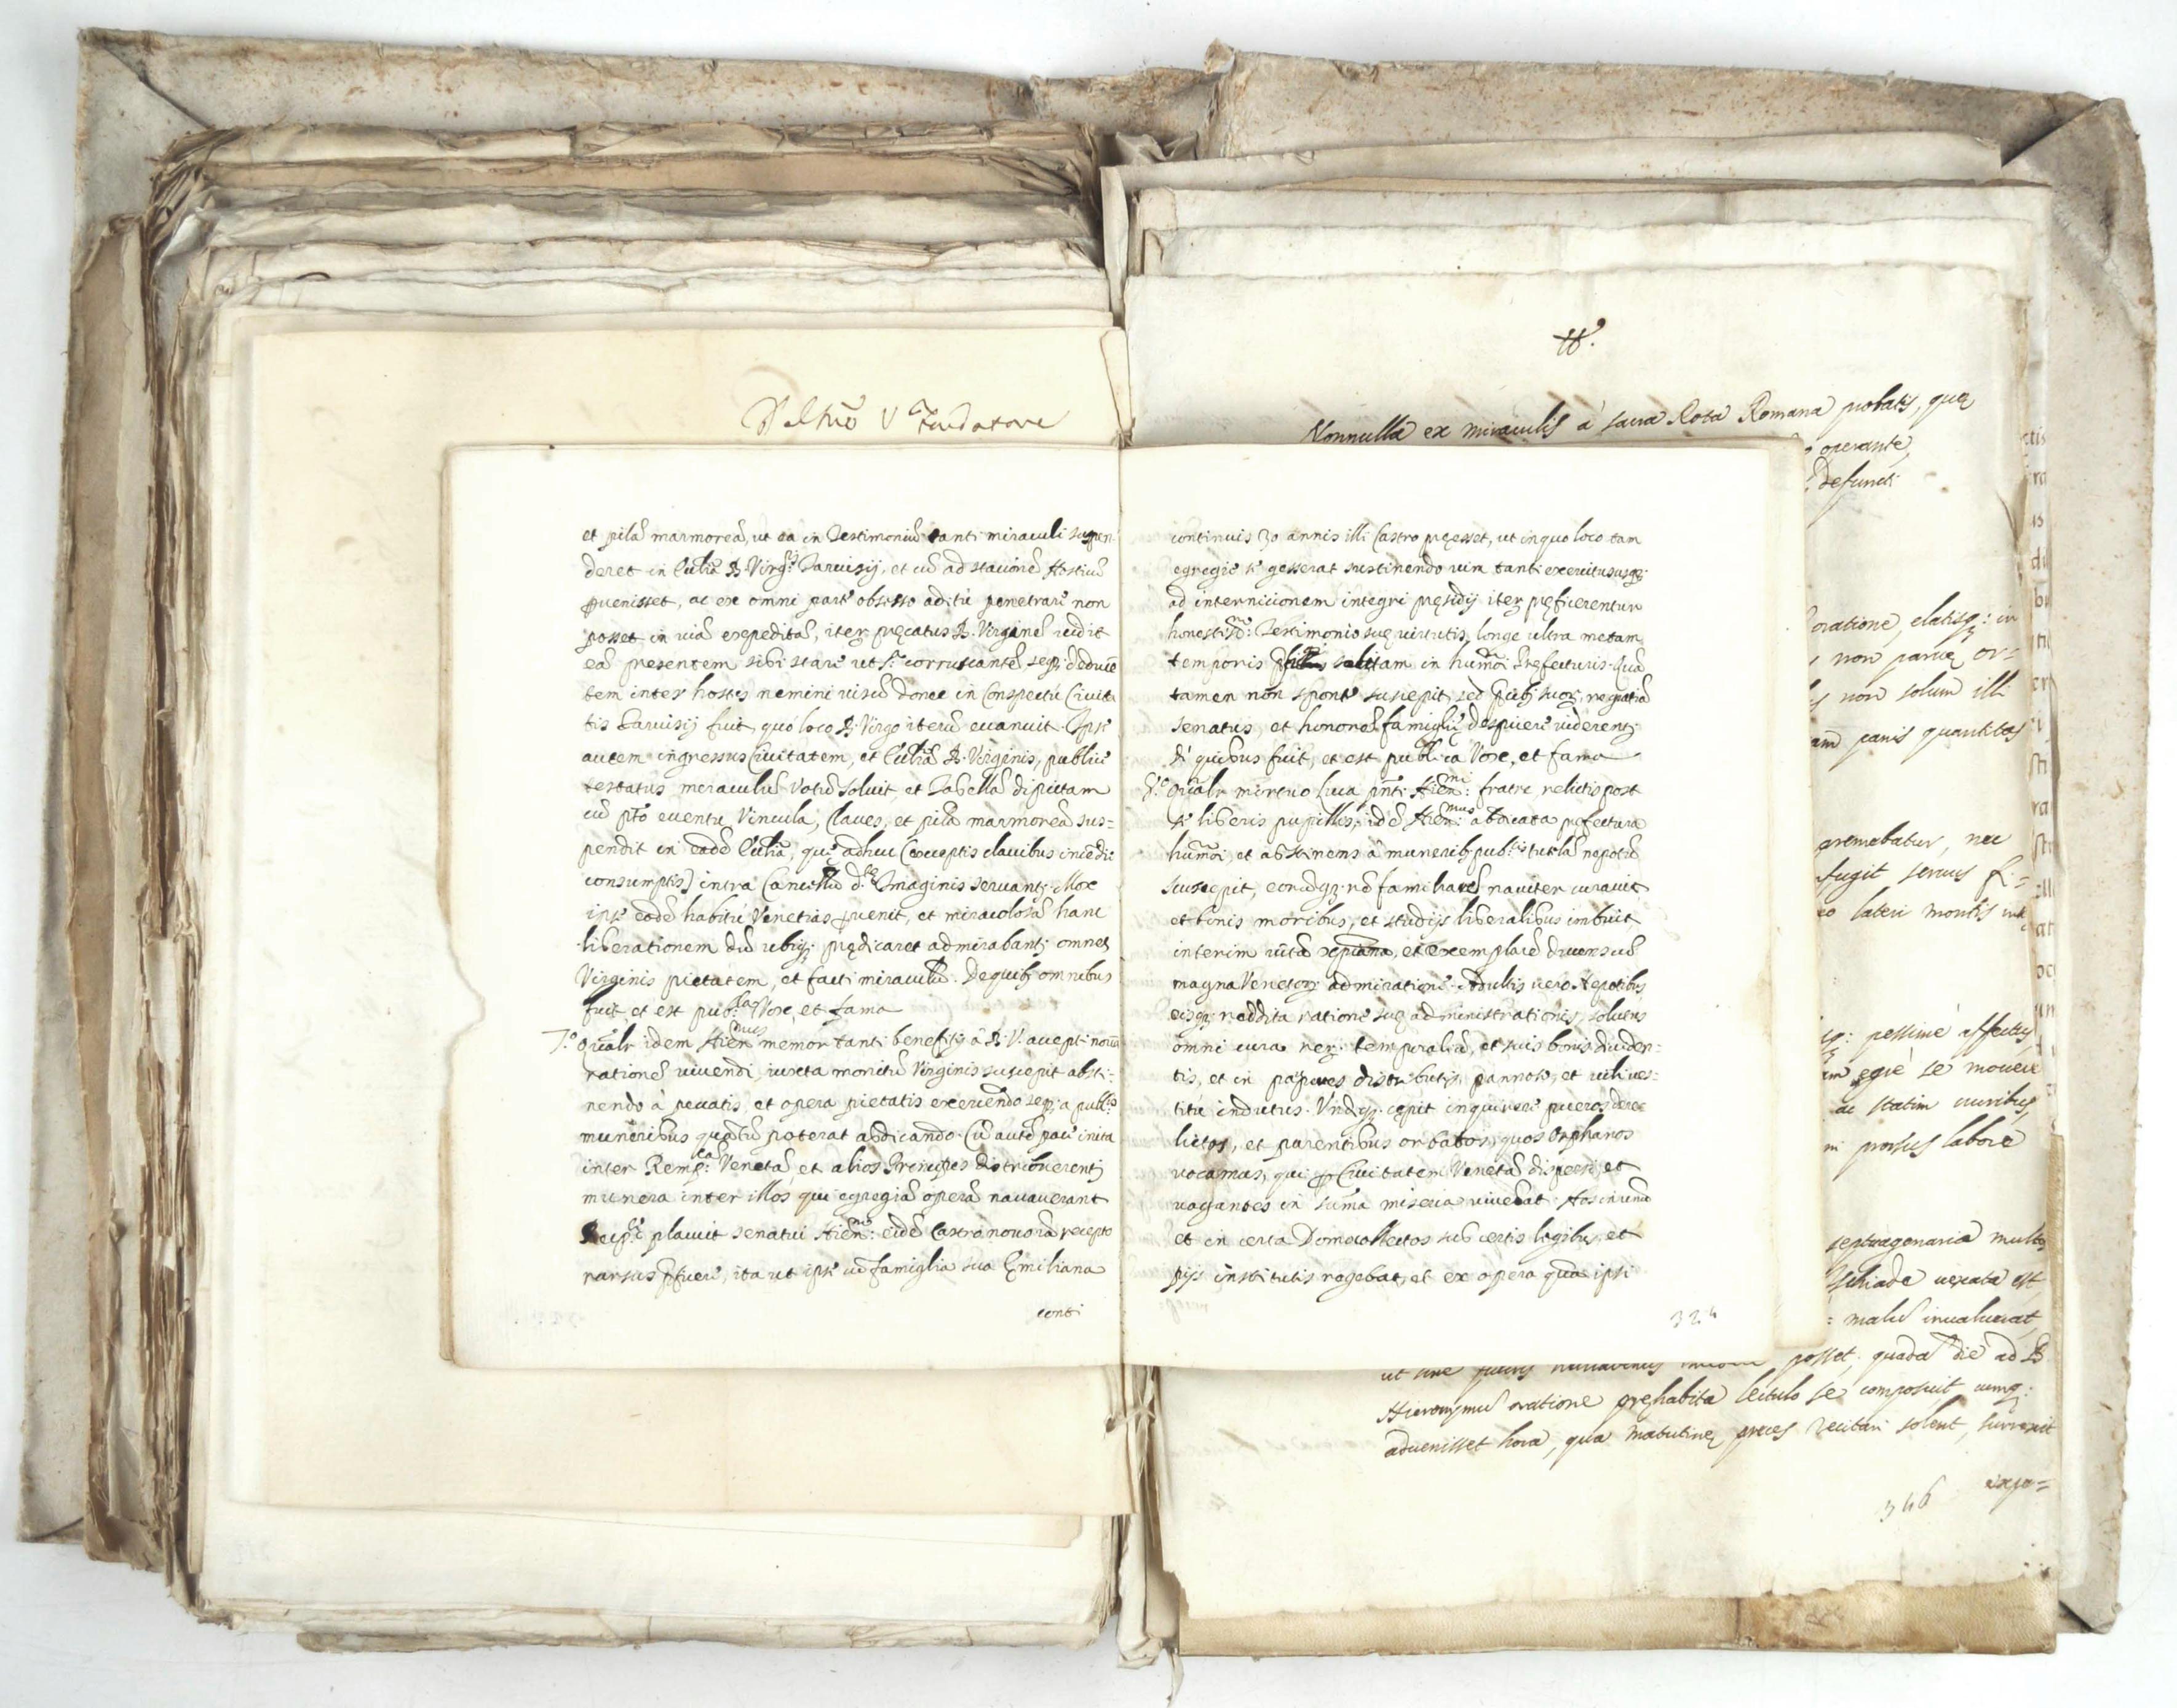 Fundatore
et pilã marmoreã, ut ea in Testimoniũ tanti miraculi suspen
deret in Eccl̃ia B. Virg.is Tarvisij, et cũ ad stationẽ Hostiũ
pvenisset, ac ex omni parte obsesso aditu penetrare non
posset in viã expeditã, iter pręcatus B. Virginẽ vidit
eã presentem sibi stare ut
tem inter hostes nemini visũ donec in Conspectu Civita
tis Tarvisij fuit, quo loco B. Virgo iterũ evanuit. Ipse
autem ingressus Civitatem, et Eccl̃iã B. Virginis, publice
testatus miraculũ votũ solvit et Tabellã dipictam
cũ pto eventu Vincula, Claves, et pilã marmoreã sus=
pendit in eadẽ Eccl̃ia, quę adhuc (exceptis clavibus incẽdio
consumptis) intra Cancellũ d.ę Imaginis servantꝫ. Mox
ipse eodẽ habitu Venetias pvenit, et miracolosã hanc
liberationem dũ ubiqꝫ prędicaret admirabantꝫ omnes
Virginis pietatem, et facti miraculũ. De quibꝫ omnibus
fuit, et est pub.ca Vox, et fama
7.o Qual'r idem Hier.mus memor tanti beneficij à B. V. accepti novã
rationẽ vivendi, iuxta monitũ Virginis suscepit absti=
nendo à peccatis, et opera pietatis exercendo seqꝫ a publ.cis
muneribus quãtũ poterat abdicando. Cũ autẽ pace inita
inter Remp.cã Venetã et alios Principes distribuerentꝫ
munera inter illos, qui egregiã operã navaverant
Reip.cę placuit senatui Hier.mũ eidẽ Castro novo iã recepto
rursus pficere, ita ut ipse cũ famiglia sua Emiliana
conti
continuis 30 annis illi Castro pręesset, ut in quo loco tam
egregie se gesserat sustinendo vim tanti exercitus usqꝫ
ad internicionem integri pręsidij iter pręficerentur
honestis.mo Testimonio suę virtutis, longe ultra metam
temporis solitam in humoi Pręfecturis. Quã
tamen non sponte suscepit, sed
senatus, et honorẽ famiglię despicere videretꝫ
De quibus fuit, et est publica Vox, et fama
8.o Qual'r mortuo Luca pnti Hier.mi fratre relictis post
se liberis pupillis, idẽ Hier.mus abdicata pfectura
humoi, et abstinens à muneribꝫ pub.cis tutelã nepotũ
suscepit, eorũqꝫ rẽ familiarẽ naviter curavit
et bonis moribus, et studijs liberalibus imbuit,
interim vitã et exemplarẽ
magna Venetoꝝ admiratione. Adultis vero Nepotibus
eisqꝫ reddita ratione suę administrationis, solutus
omni cura reꝝ temporaliũ, et suis bonis dividen=
tis, et in pauperes distributis, pannoso, et vili ves=
titu indutus. Undiqꝫ cępit inquirere pueros dere
lictos, et parentibus orbatos, quos orphanos
vocamus, qui p Civitatem Venetã dispersi, et
vagantes in summa miseria vivebãt. Hos inventos
et in certa Domo collectos sub certis legibus, et
pijs institutis regebat, et ex opera quã ipsi
324
Nonnulla ex miraculis à sacra Rota Romana probatis, quę
operante,
defuncti
oratione, elatisqꝫ: in
non parvę or=
non solum illi
panis quantitas
premebatur, nec
fugit servus
lateri montis
pessime affectus
egrè se movere
ac statim
prorsus labore
septuagenaria multos
schiade vexata est,
: malũ invaluerat,
posset; quadã die ad B.
Hieronymũ oratione pręhabita lectulo se composuit, cumqꝫ:
advenisset hora, qua matutinę preces recitari solent, surrexit
expo=
346